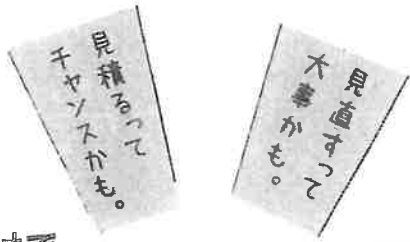 見積るって
チャンスかも。
見直すって
大事かも。